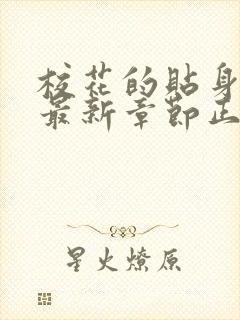 校花的贴身
最新章节正
星火燎原